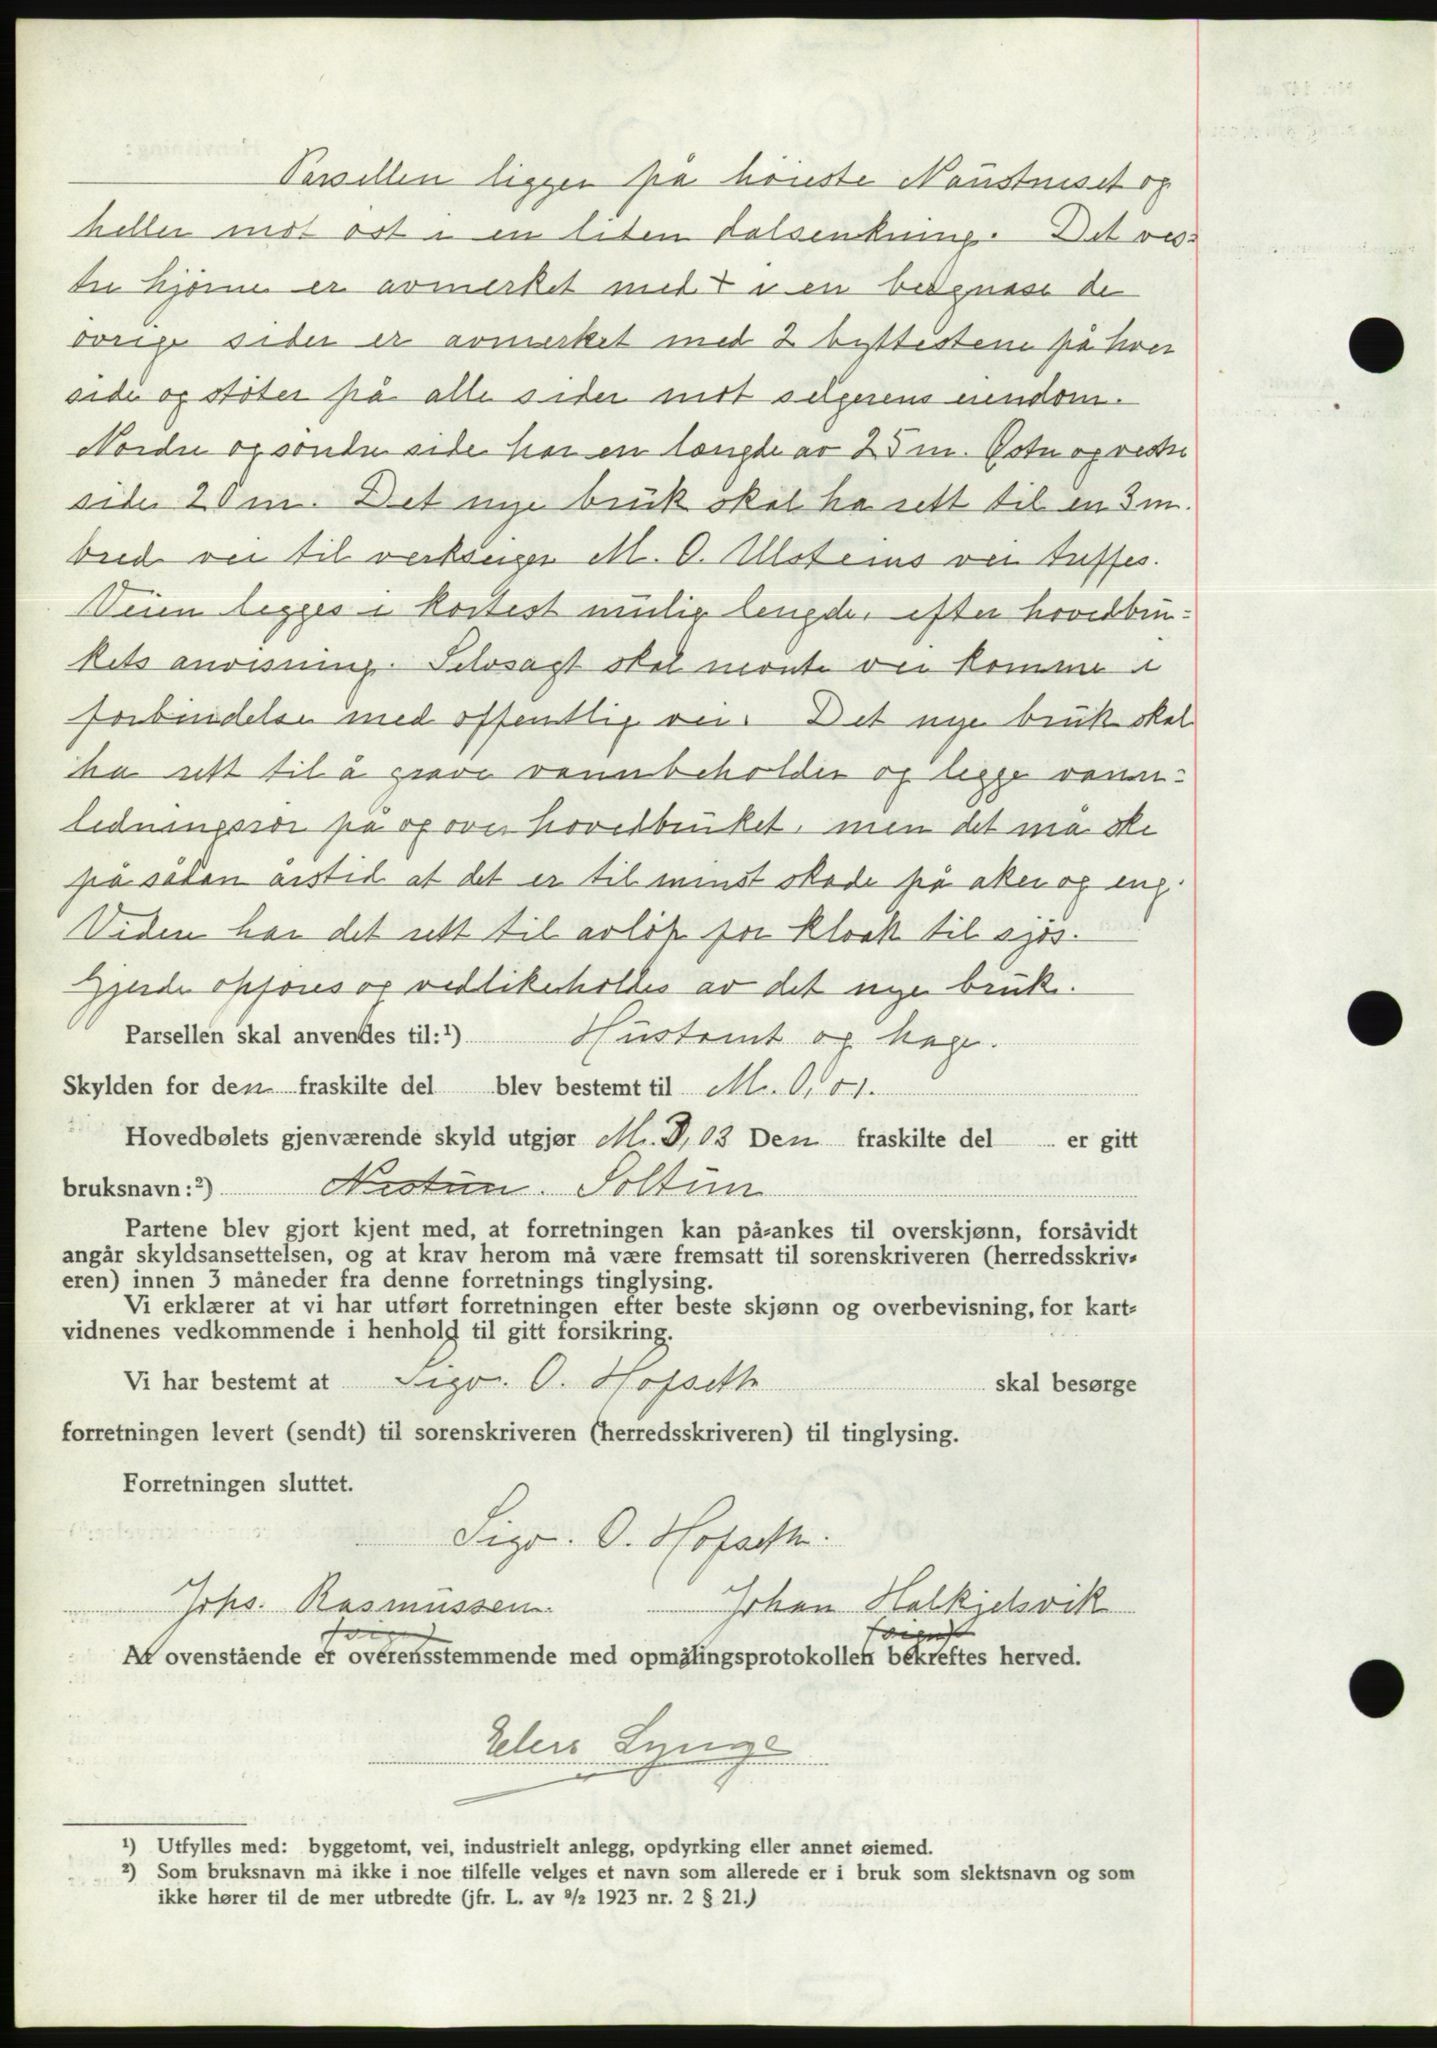 Parsellen ligger på höieste Naustneset og
heller mot öst i en liten dalsenkning. Det ves=
tre hjörne er avmerket med + i en bergnase de
övrige sider er avmerket med 2 byttestene på hver
side og stöter på alle sider mot selgerens eiendom.
Nordre og söndre side har en længde av 25 m. Østre og vestre
side 20 m. Det nye bruk skal ha rett til en 3 m.
bred vei til verkseiger M. O. Ulsteins vei treffes.
Veien legges i kortest mulig lengde, efter hovedbru=
kets anvisning. Selvsagt skal nevnte vei komme i
forbindelse med offentlig vei. Det nye bruk skal
ha rett til å grave vannbeholder og legge vann=
ledningsrör på og over hovedbruket, men det må ske
på sådan årstid at det er til minst skade på aker og eng.
Videre har det rett til avlöp for kloak til sjös.
Gjerde opföres og vedlikeholdes av det nye bruk.
Parsellen skal anvendes til:¹) Hustomt og hage.
Skylden for den fraskilte del blev bestemt til M. 0,01.
Hovedbølets gjenværende skyld utgjør M. 3,03 Den fraskilte del er gitt
bruksnavn:²) Nestun. Soltun
Partene blev gjort kjent med, at forretningen kan på=ankes til overskjønn, forsåvidt
angår skyldsansettelsen, og at krav herom må være fremsatt til sorenskriveren (herredsskriv=
eren) innen 3 måneder fra denne forretnings tinglysing.
Vi erklærer at vi har utført forretningen efter beste skjønn og overbevisning, for kart=
vidnenes vedkommende i henhold til gitt forsikring.
Vi har bestemt at Sigv. O. Hofseth skal besørge
forretningen levert (sendt) til sorenskriveren (herredsskriveren) til tinglysing.
Forretningen sluttet.
Sigv. O. Hofseth.
Johs. Rasmussen. Johan Halkjelsvik
(sign) (sign)
At ovenstående er overensstemmende med opmålingsprotokollen bekreftes herved.
Elers Lynge
¹) Utfylles med: byggetomt, vei, industrielt anlegg, opdyrking eller annet øiemed.
²) Som bruksnavn må ikke i noe tilfelle velges et navn som allerede er i bruk som slektsnavn og som
ikke hører til de mer utbredte (jfr. L. av ⁹/₂ 1923 nr. 2 § 21.)